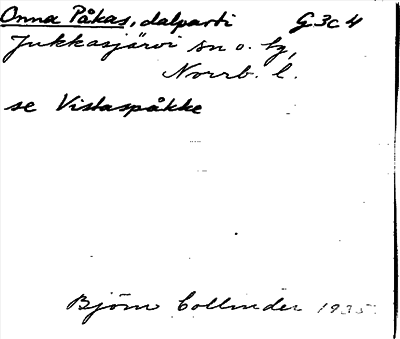 Onna Påkas, dalparti G 3 c 4
Jukkasjärvi sn o. tg,
Norrb. l.
se Vistaspåkke
Björn Collinder 1935